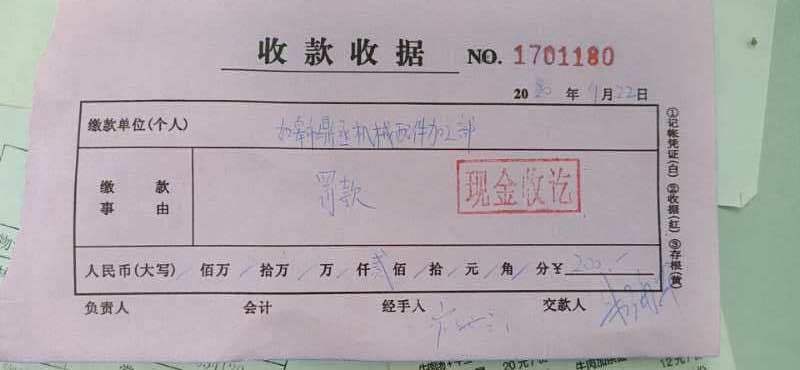 收款收据 NO. 1701180
2020年9月22日
缴款单位(个人) 如皋市鼎丞机械配件加工部
缴款事由 罚款
现金收讫
人民币(大写) 佰万 拾万 万 仟 贰佰 拾 元 角 分¥ 200.-
负责人 会计 经手人 交款人
①记帐凭证(白) ②收据(红) ③存根(黄)
20元/
12元/